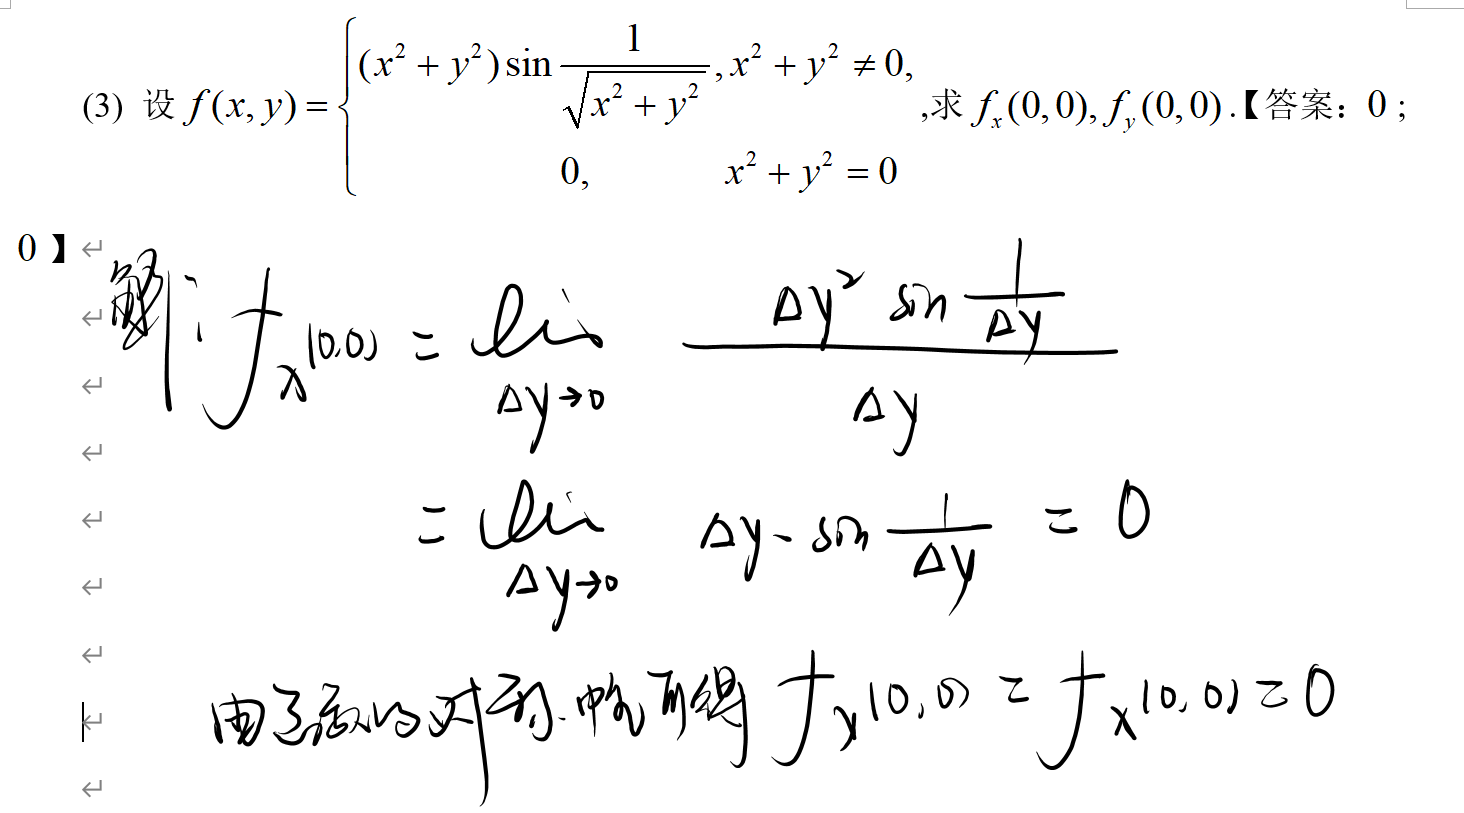 (3) 设 f(x, y) = { (x² + y²) sin 1/√(x² + y²), x² + y² ≠ 0, 0, x² + y² = 0 ,求 f_x(0,0), f_y(0,0).【答案：0；
0】
解： f_x(0,0) = lim_{Δy→0} (Δy² sin 1/Δy) / Δy
= lim_{Δy→0} Δy · sin 1/Δy = 0
由函数的对称性可得 f_y(0,0) = f_x(0,0) = 0